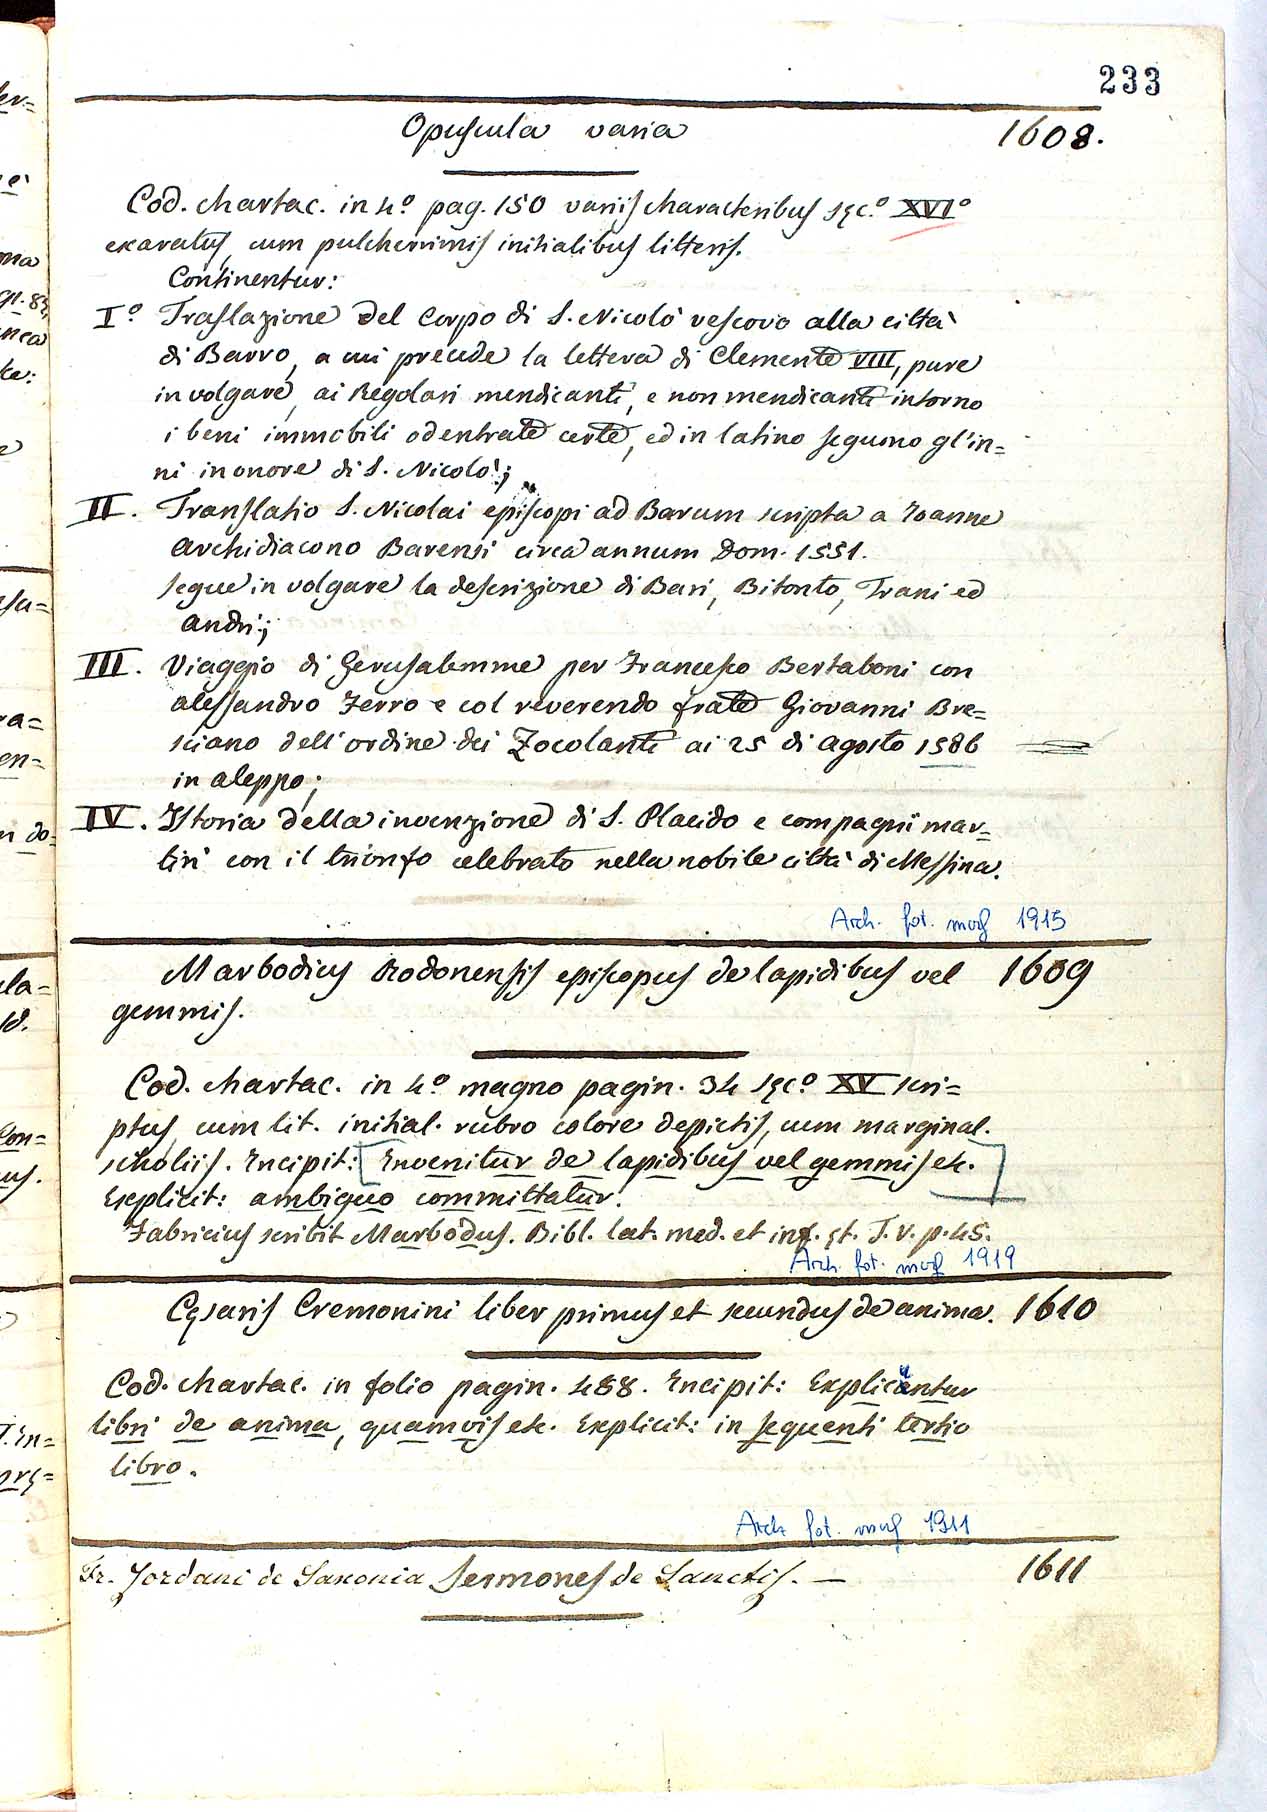 233
Opuscula varia 1608.
Cod. chartac. in 4.º pag. 150 variis characteribus sęc.º XVIº
exaratus, cum pulcherrimis initialibus litteris.
Continentur:
Iº Traslazione del corpo di S. Nicolò vescovo alla città
di Barro, a cui precede la lettera di Clemente VIII, pure
in volgare, ai Regolari mendicanti, e non mendicanti intorno
i beni immobili od entrate certe, ed in latino seguono gl'in=
ni in onore di S. Nicolò;
II. Translatio S. Nicolai episcopi ad Barum scripta a Joanne
Archidiacono Barensi circa annum Dom. 1551.
segue in volgare la descrizione di Bari, Bitonto, Trani ed
Andri;
III. Viaggio di Gerusalemme per Francesco Bertaboni con
Alessandro Ferro e col reverendo frate Giovanni Bre=
sciano dell'ordine dei Zocolanti ai 25 di agosto 1586
in Aleppo;
IV. Istoria della invenzione di S. Placido e compagni mar=
tiri con il trionfo celebrato nella nobile città di Messina.
Arch. fot. neg 1915
Marbodius Rodonensis episcopus de lapidibus vel 1609
gemmis.
Cod. chartac. in 4.º magno pagin. 34 sęc.º XV scri=
ptus, cum lit. initial. rubro colore depictis, cum marginal.
scholiis. Incipit: [Invenitur de lapidibus vel gemmis etc.]
Explicit: ambiguo committatur.
Fabricius scribit Marbodus. Bibl. lat. med. et inf. ęt. T. V. p. 45.
Arch. fot. neg 1919
Cęsaris Cremonini liber primus et secundus de anima. 1610
Cod. chartac. in folio pagin. 488. Incipit: Explicantur
libri de anima, quamvis etc. Explicit: in sequenti tertio
libro.
Arch fot. neg 1911
Fr. Jordani de Saxonia Sermones de Sanctis. — 1611